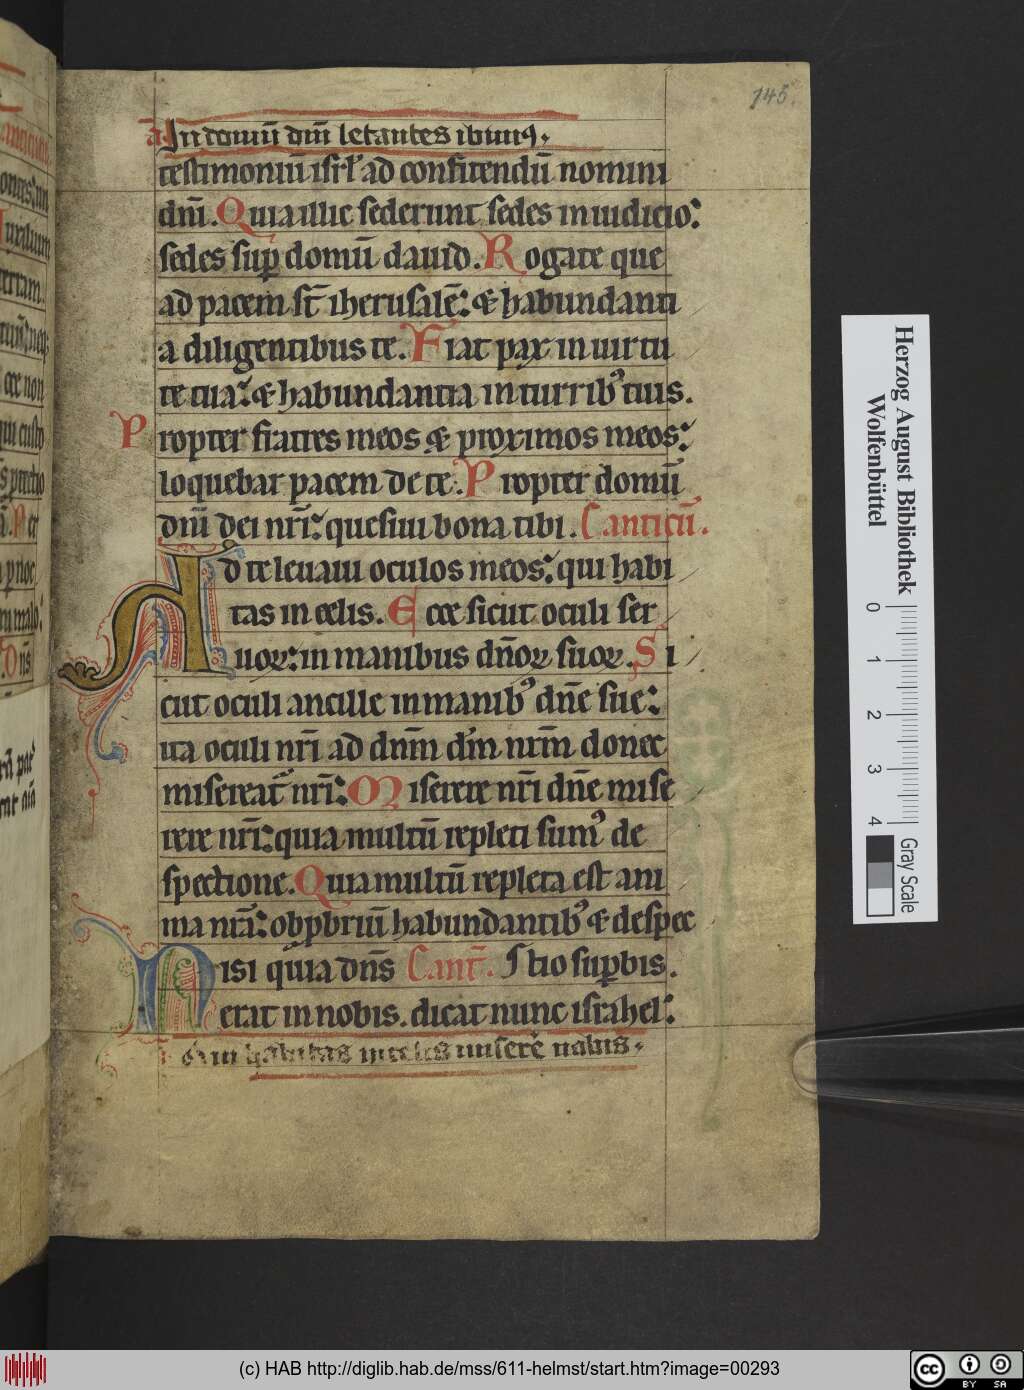 145.
a In domū dn̄i letantes ibimꝰ.
testimoniū isrl̄ ad confitendū nomini
dn̄i. Quia illic sederunt sedes in iudicio:
sedes sup̱ domū dauid. Rogate que
ad pacem st̄ iherusalē: & habundanti
a diligentibus te. Fiat pax in uirtu
te tua: & habundantia in turribꝰ tuis.
Propter fratres meos & proximos meos:
loquebar pacem de te: Propter domū
dn̄i dei nr̄i: quesiui bona tibi. Canticū.
Ad te leuaui oculos meos: qui habi
tas in celis. Ecce sicut oculi ser
uoꝝ: in manibus dn̄oꝝ suoꝝ. Si
cut oculi ancille in manibꝰ dn̄e sue:
ita oculi nr̄i ad dnm̄ dm̄ nrm̄ donec
misereat᷑ nr̄i: Miserere nr̄i dn̄e mise
rere nr̄i: quia multū repleti sumꝰ de
spectione. Quia multū repleta est ani
ma nr̄a: obp̱briū habundantibꝰ & despec
Nisi quia dn̄s Cant̄. S tio sup̱bis.
erat in nobis. dicat nunc israhel:
Qui habitas in celis miserē nobis.
Herzog August Bibliothek
Wolfenbüttel
0 1 2 3 4
Gray Scale
(c) HAB http://diglib.hab.de/mss/611-helmst/start.htm?image=00293
cc BY SA